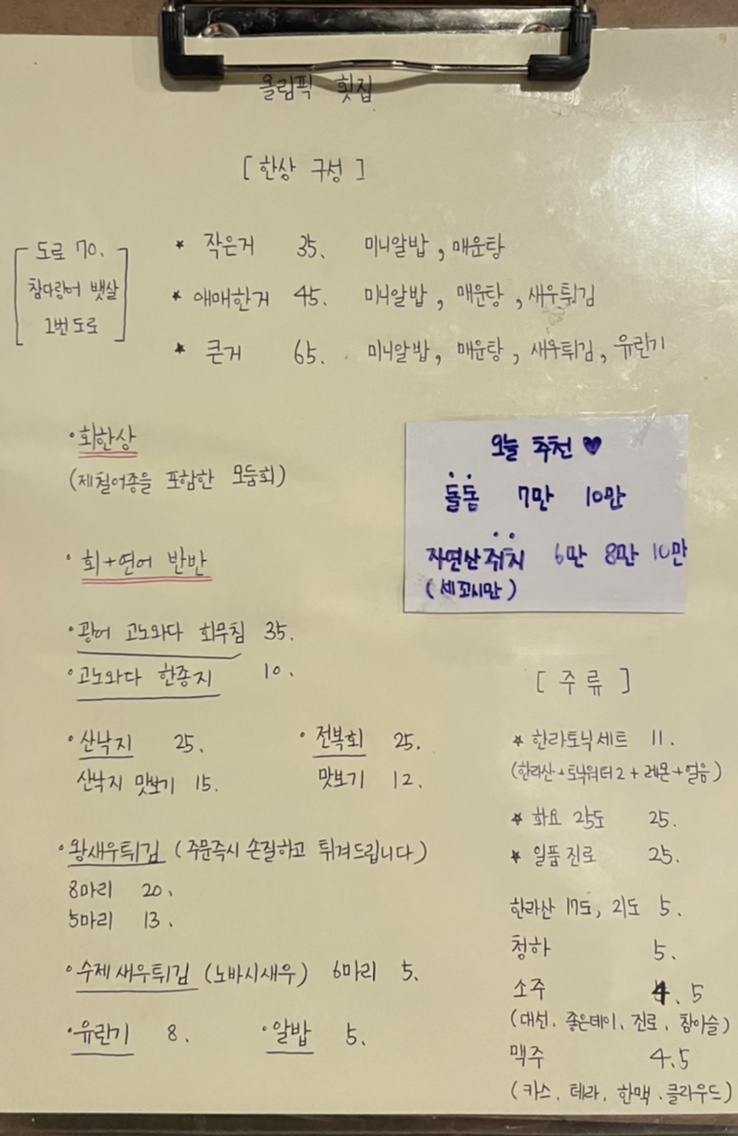 올림픽 횟집
[ 한상 구성 ]
도로 70.
참다랑어 뱃살
1번 도로
★ 작은거 35. 미니알밥, 매운탕
★ 애매한거 45. 미니알밥, 매운탕, 새우튀김
★ 큰거 65. 미니알밥, 매운탕, 새우튀김, 유린기
• 회한상
(제철어종을 포함한 모둠회)
• 회+연어 반반
오늘 추천 ♥
돌돔 7만 10만
자연산 쥐치 6만 8만 10만
(세꼬시만)
• 광어 고노와다 회무침 35.
• 고노와다 한종지 10.
• 산낙지 25.
산낙지 맛보기 15.
• 전복회 25.
맛보기 12.
• 왕새우튀김 (주문즉시 손질하고 튀겨드립니다)
8마리 20.
5마리 13.
• 수제새우튀김 (노바시새우) 6마리 5.
• 유린기 8.
• 알밥 5.
[ 주류 ]
★ 한라토닉세트 11.
(한라산+토닉워터2+레몬+얼음)
★ 화요 25도 25.
★ 일품진로 25.
한라산 17도, 21도 5.
청하 5.
소주 4.5
(대선. 좋은데이. 진로. 참이슬)
맥주 4.5
(카스. 테라. 한맥. 클라우드)